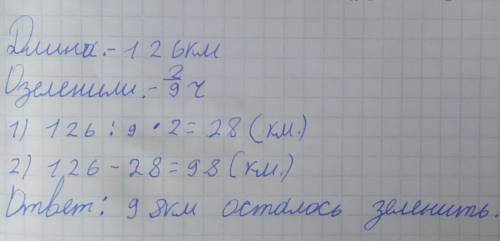 Длина.- 126км
Озеленили.- 2/9 ч
1) 126 : 9 • 2 = 28 (км.)
2) 126 - 28 = 98 (км.)
Ответ: 98км осталось зеленить.